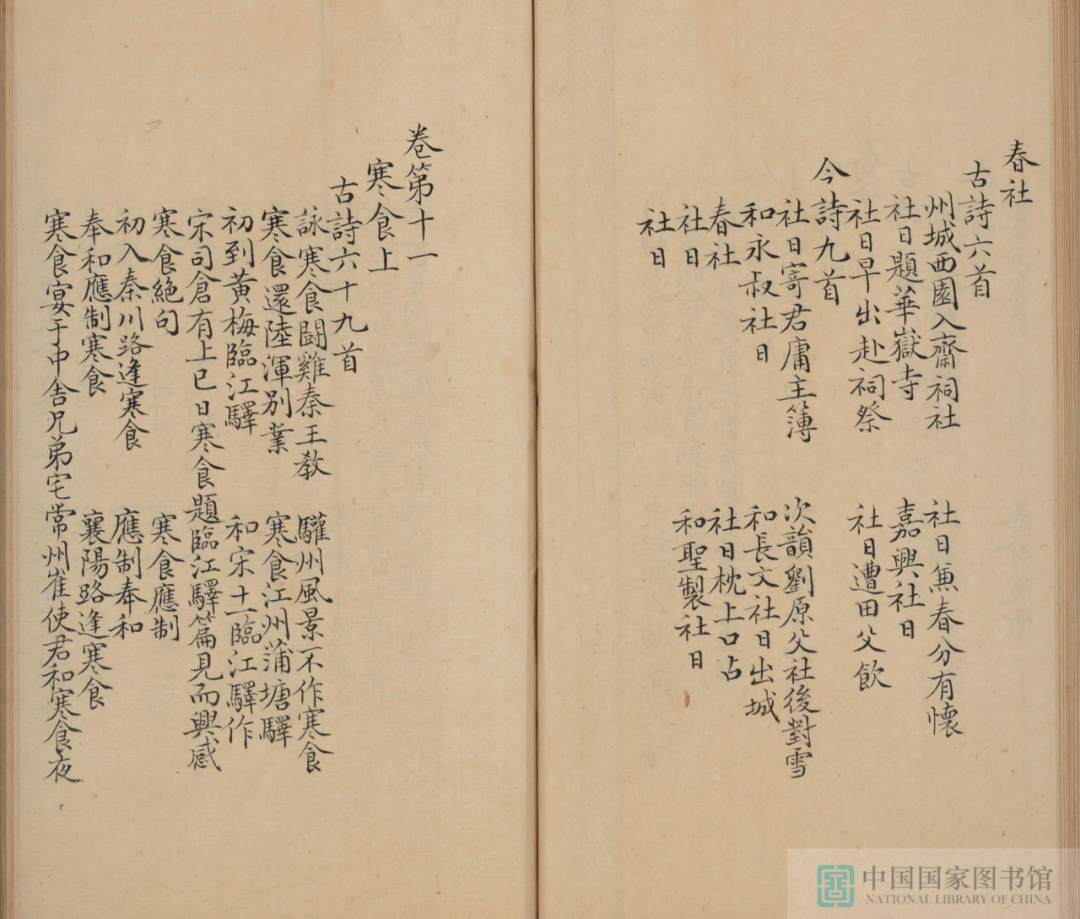 春社
古詩六首
州城西園入齋祠社 社日兼春分有懷
社日題華嶽寺 嘉興社日
社日早出赴祠祭 社日遭田父飲
今詩九首
社日寄君庸主簿 次韻劉原父社後對雪
和永叔社日 和長文社日出城
春社 社日枕上口占
社日 和聖製社日
社日
卷第十一
寒食上
古詩六十九首
詠寒食鬪雞秦王教 驩州風景不作寒食
寒食還陸渾別業 寒食江州蒲塘驛
初到黃梅臨江驛 和宋十一臨江驛作
宋司倉有上巳日寒食題臨江驛篇見而興感
寒食絕句 寒食應制
初入秦川路逢寒食 應制奉和
奉和應制寒食 襄陽路逢寒食
寒食宴于中舍兄弟宅常州崔使君和寒食夜
中国国家图书馆
NATIONAL LIBRARY OF CHINA